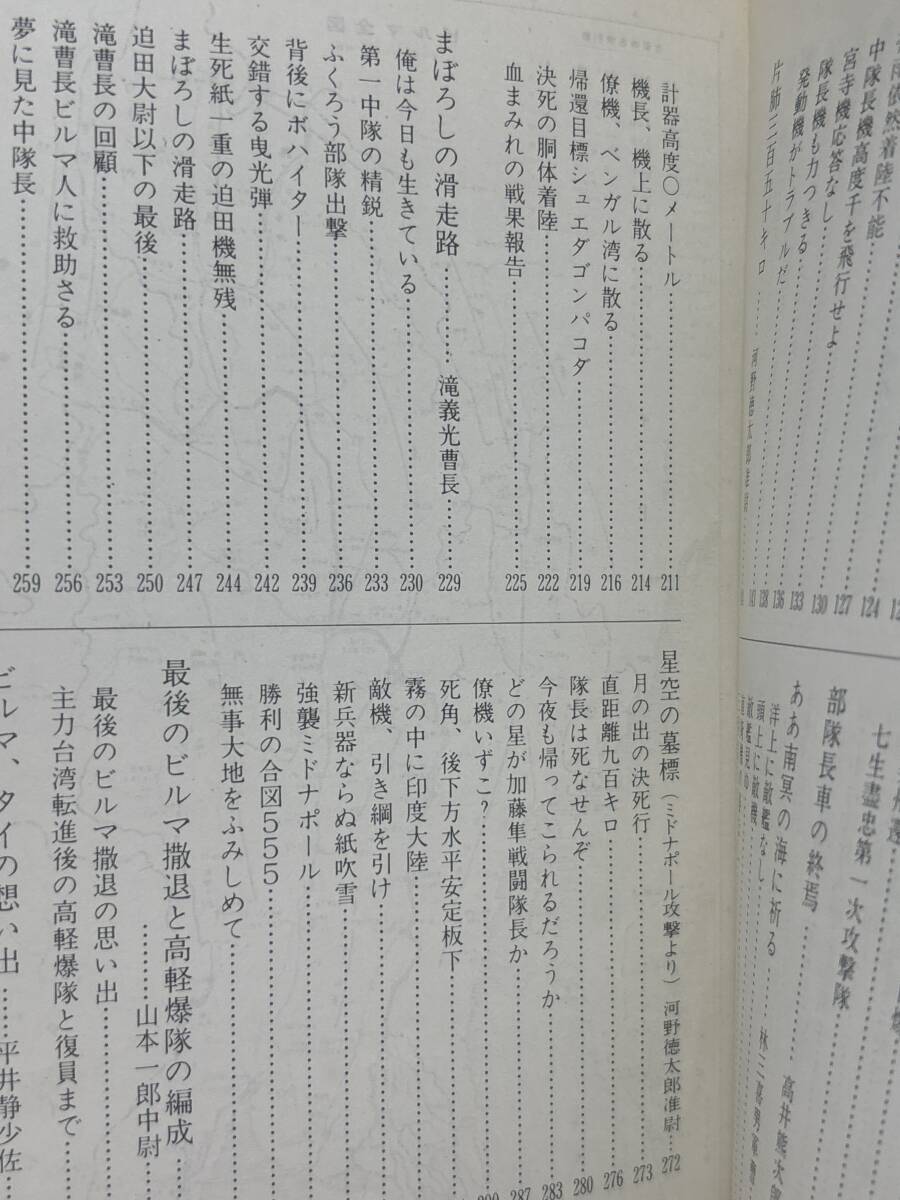 中隊長機高度千を飛行せよ……124
宮寺機応答なし……127
隊長機も力つきる……130
発動機がトラブルだ……133
片肺三百五十キロ……136
七生盡忠第一次攻撃隊
部隊長車の終焉
ああ南冥の海に祈る……高井
洋上に敵艦なし……林三喜男軍曹
頭上に敵機
計器高度〇メートル……211
機長、機上に散る……214
僚機、ベンガル湾に散る……216
帰還目標シュエダゴンパコダ……219
決死の胴体着陸……222
血まみれの戦果報告……225
まぼろしの滑走路……滝義光曹長……229
俺は今日も生きている……230
第一中隊の精鋭……233
ふくろう部隊出撃……236
背後にボハイター……239
交錯する曳光弾……242
生死紙一重の迫田機無残……244
まぼろしの滑走路……247
迫田大尉以下の最後……250
滝曹長の回顧……253
滝曹長ビルマ人に救助さる……256
夢に見た中隊長……259
星空の墓標（ミドナポール攻撃より）河野徳太郎准尉……272
月の出の決死行……273
直距離九百キロ……276
隊長は死なせんぞ……280
今夜も帰ってこられるだろうか……283
どの星が加藤隼戦闘隊長か……287
僚機いずこ？……290
死角、後下方水平安定板下
霧の中に印度大陸
敵機、引き綱を引け
新兵器ならぬ紙吹雪
強襲ミドナポール
勝利の合図555
無事大地をふみしめて
最後のビルマ撤退と高軽爆隊の編成
……山本一郎中尉
最後のビルマ撤退の思い出
主力台湾転進後の高軽爆隊と復員まで
ビルマ、タイの想い出……平井静少佐